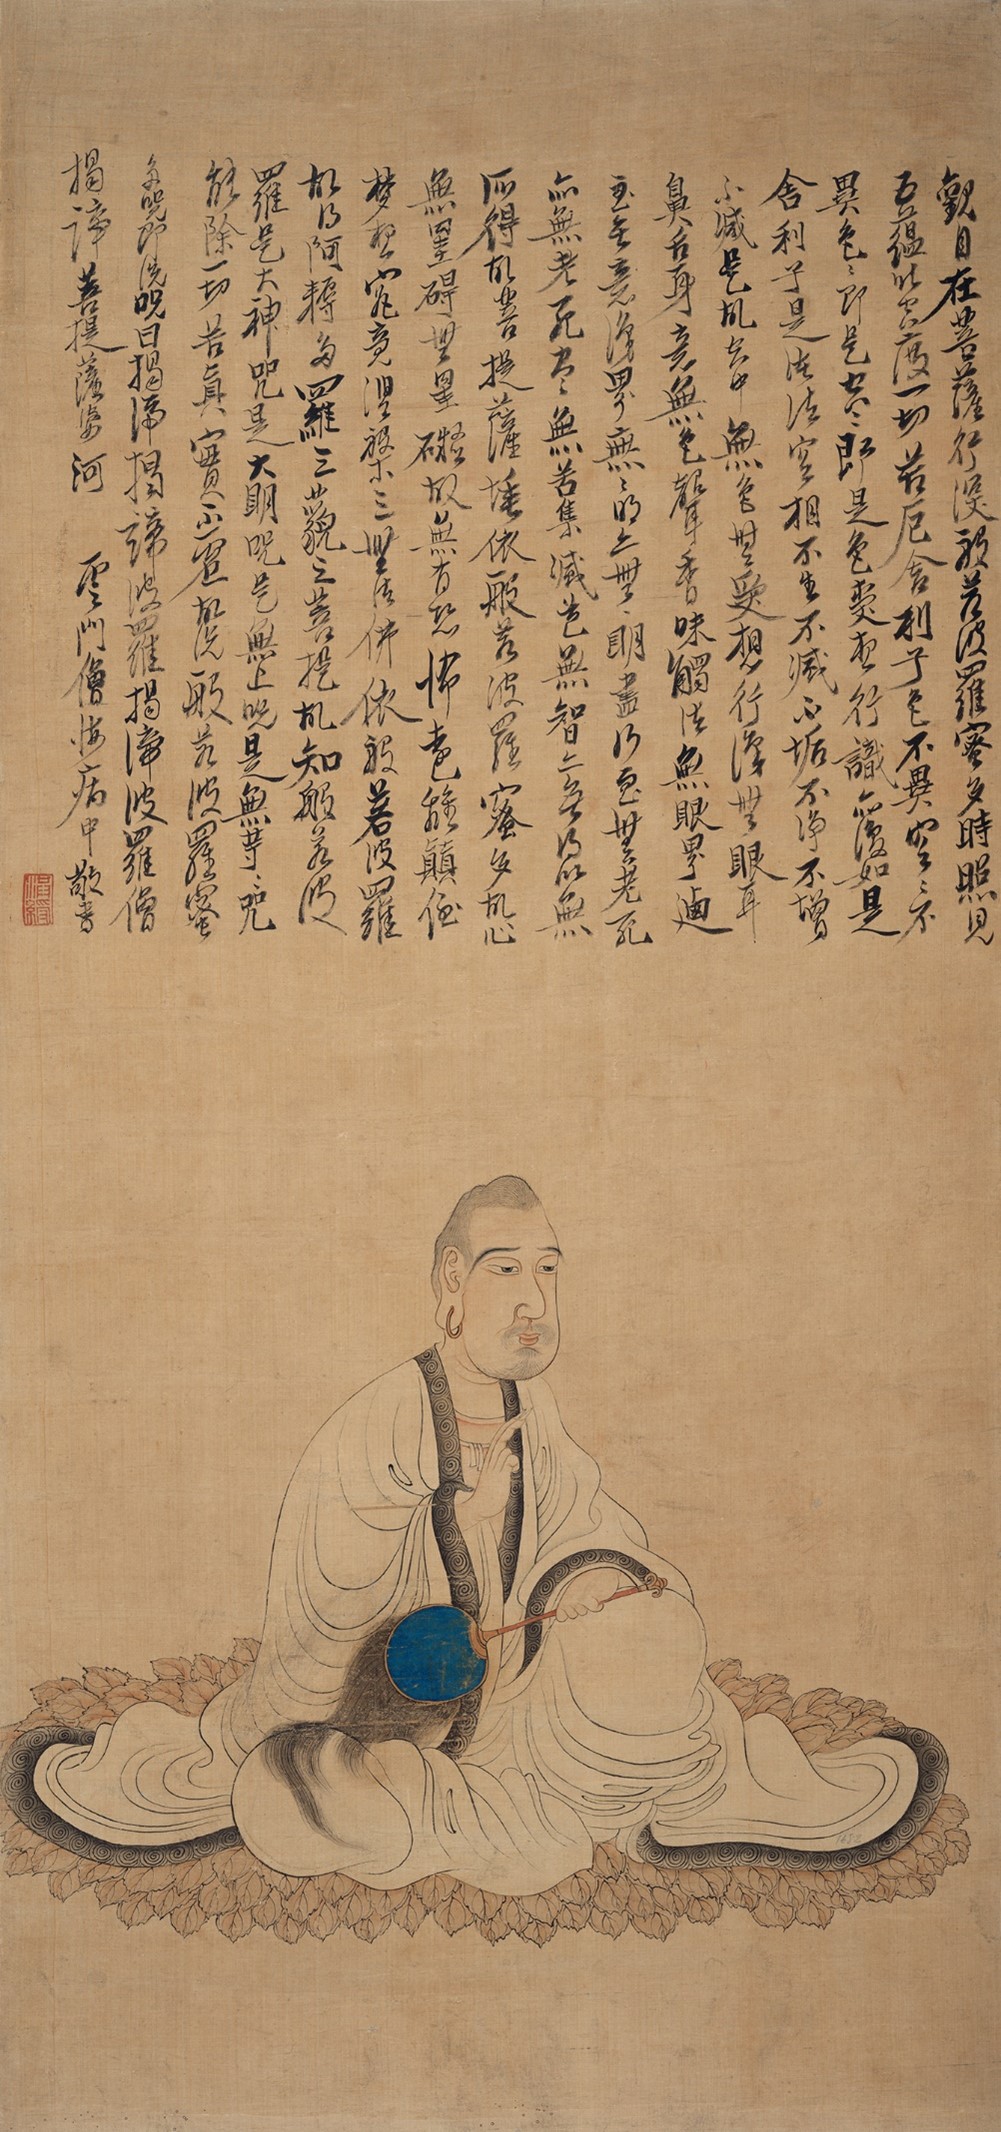 觀自在菩薩行深般若波羅蜜多時照見
五蘊皆空度一切苦厄舍利子色不異空〻不
異色〻即是空〻即是色受想行識亦復如是
舍利子是法空相不生不滅不垢不淨不增
不減是故空中無色無受想行識無眼耳
鼻舌身意無色聲香味觸法無眼界
至無意識界無〻明亦無〻明盡乃至無老死
亦無老死盡無苦集滅道無智亦無得以無
所得故菩提薩埵依般若波羅蜜多故心
無罣碍無罣礙故無有恐怖遠離顛倒
夢想究竟涅槃三世諸佛依般若波羅
故得阿耨多羅三藐三菩提故知般若波
羅是大神咒是大明咒是無上咒是無等〻咒
能除一切苦真實不虛故說般若波羅蜜
多咒即說咒曰揭諦揭諦波羅揭諦波羅僧
揭諦菩提薩婆訶 雲門僧悔病中敬書